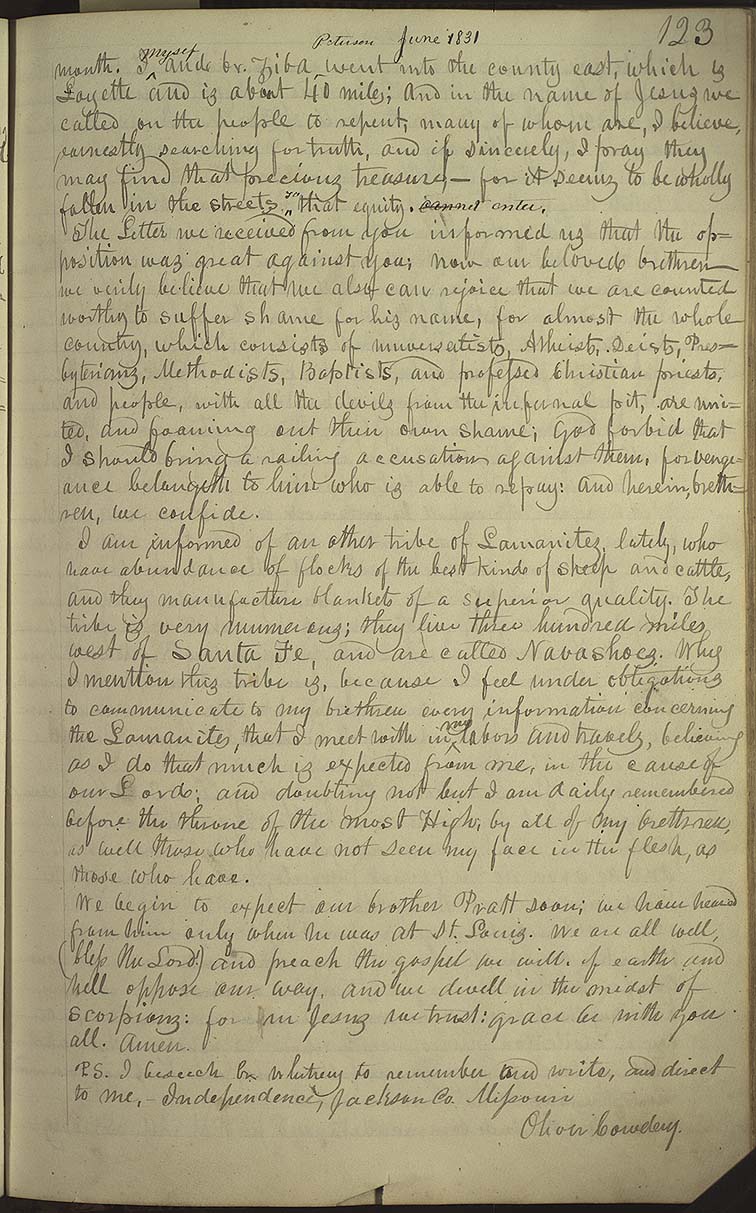 Peterson June 1831 123
month. I myself and br. Ziba went into the county east, which is
Layette and is about 40 miles; and in the name of Jesus we
called on the people to repent, many of whom are, I believe,
earnestly searching for truth, and if sincerely, I pray they
may find that precious treasure,— for it seems to be wholly
fallen in the streets so that equity. cannot enter.
The Letter we received from you informed us that the op=
position was great against you; now our beloved brethren
we verily believe that we also can rejoice that we are counted
worthy to suffer shame for his name, for almost the whole
country, which consists of universalists, Atheist, Deists, Pres=
byterians, Methodists, Baptists, and professed Christian priests,
and people, with all the devils from the infernal pit, are uni=
ted, and foaming out their own shame; God forbid that
I should bring a railing accusation against them, for venge=
ance belongeth to him who is able to repay: and herein, breth=
ren, we confide.
I am informed of an other tribe of Lamanites, lately, who
have abundance of flocks of the best kinds of sheep and cattle,
and they manufacture blankets of a superior quality. The
tribe is very numerous; they live three hundred miles
west of Santa Fe, and are called Navashoes. Why
I mention this tribe is, because I feel under obligations
to communicate to my brethren every information concerning
the Lamanites, that I meet with in my labors and travels, believing
as I do that much is expected from me, in the cause of
our Lord; and doubting not but I am daily remembered
before the throne of the most High, by all of my brethren,
as well those who have not seen my face in the flesh, as
those who have.
We begin to expect our brother Pratt soon; we have heard
from him only when he was at St. Louis. We are all well,
(bless the Lord!) and preach the gospel we will, if earth and
hell oppose our way, and we dwell in the midst of
scorpions: for in Jesus we trust: grace be with you
all. Amen.
P.S. I beseech br. Whitney to remember and write, and direct
to me,— Independence, Jackson Co. Missouri
Oliver Cowdery.